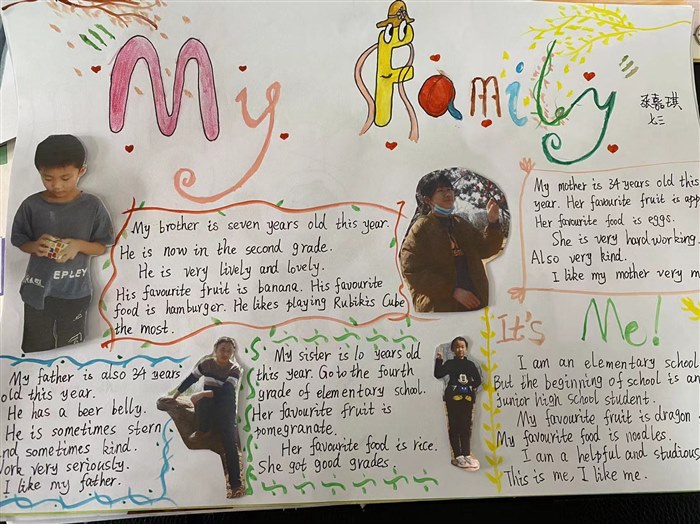 My Family
张嘉琪
七三
EPLEY
My brother is seven years old this year.
He is now in the second grade.
He is very lively and lovely.
His favourite fruit is banana. His favourite
food is hamburger. He likes playing Rubikis Cube
the most.
My mother is 34 years old this
year. Her favourite fruit is app
Her favourite food is eggs.
She is very hard working.
Also very kind.
I like my mother very m
My father is also 34 years
old this year.
He has a beer belly.
He is sometimes stern
nd sometimes kind.
ork very seriously.
I like my father.
My sister is 10 years old
this year. Go to the fourth
grade of elementary school.
Her favourite fruit is
pomegranate.
Her favourite food is rice.
She got good grades.
It's Me!
I am an elementary school
But the beginning of school is an
junior high school student.
My favourite fruit is dragon
My favourite food is noodles.
I am a helpful and studious
This is me, I like me.